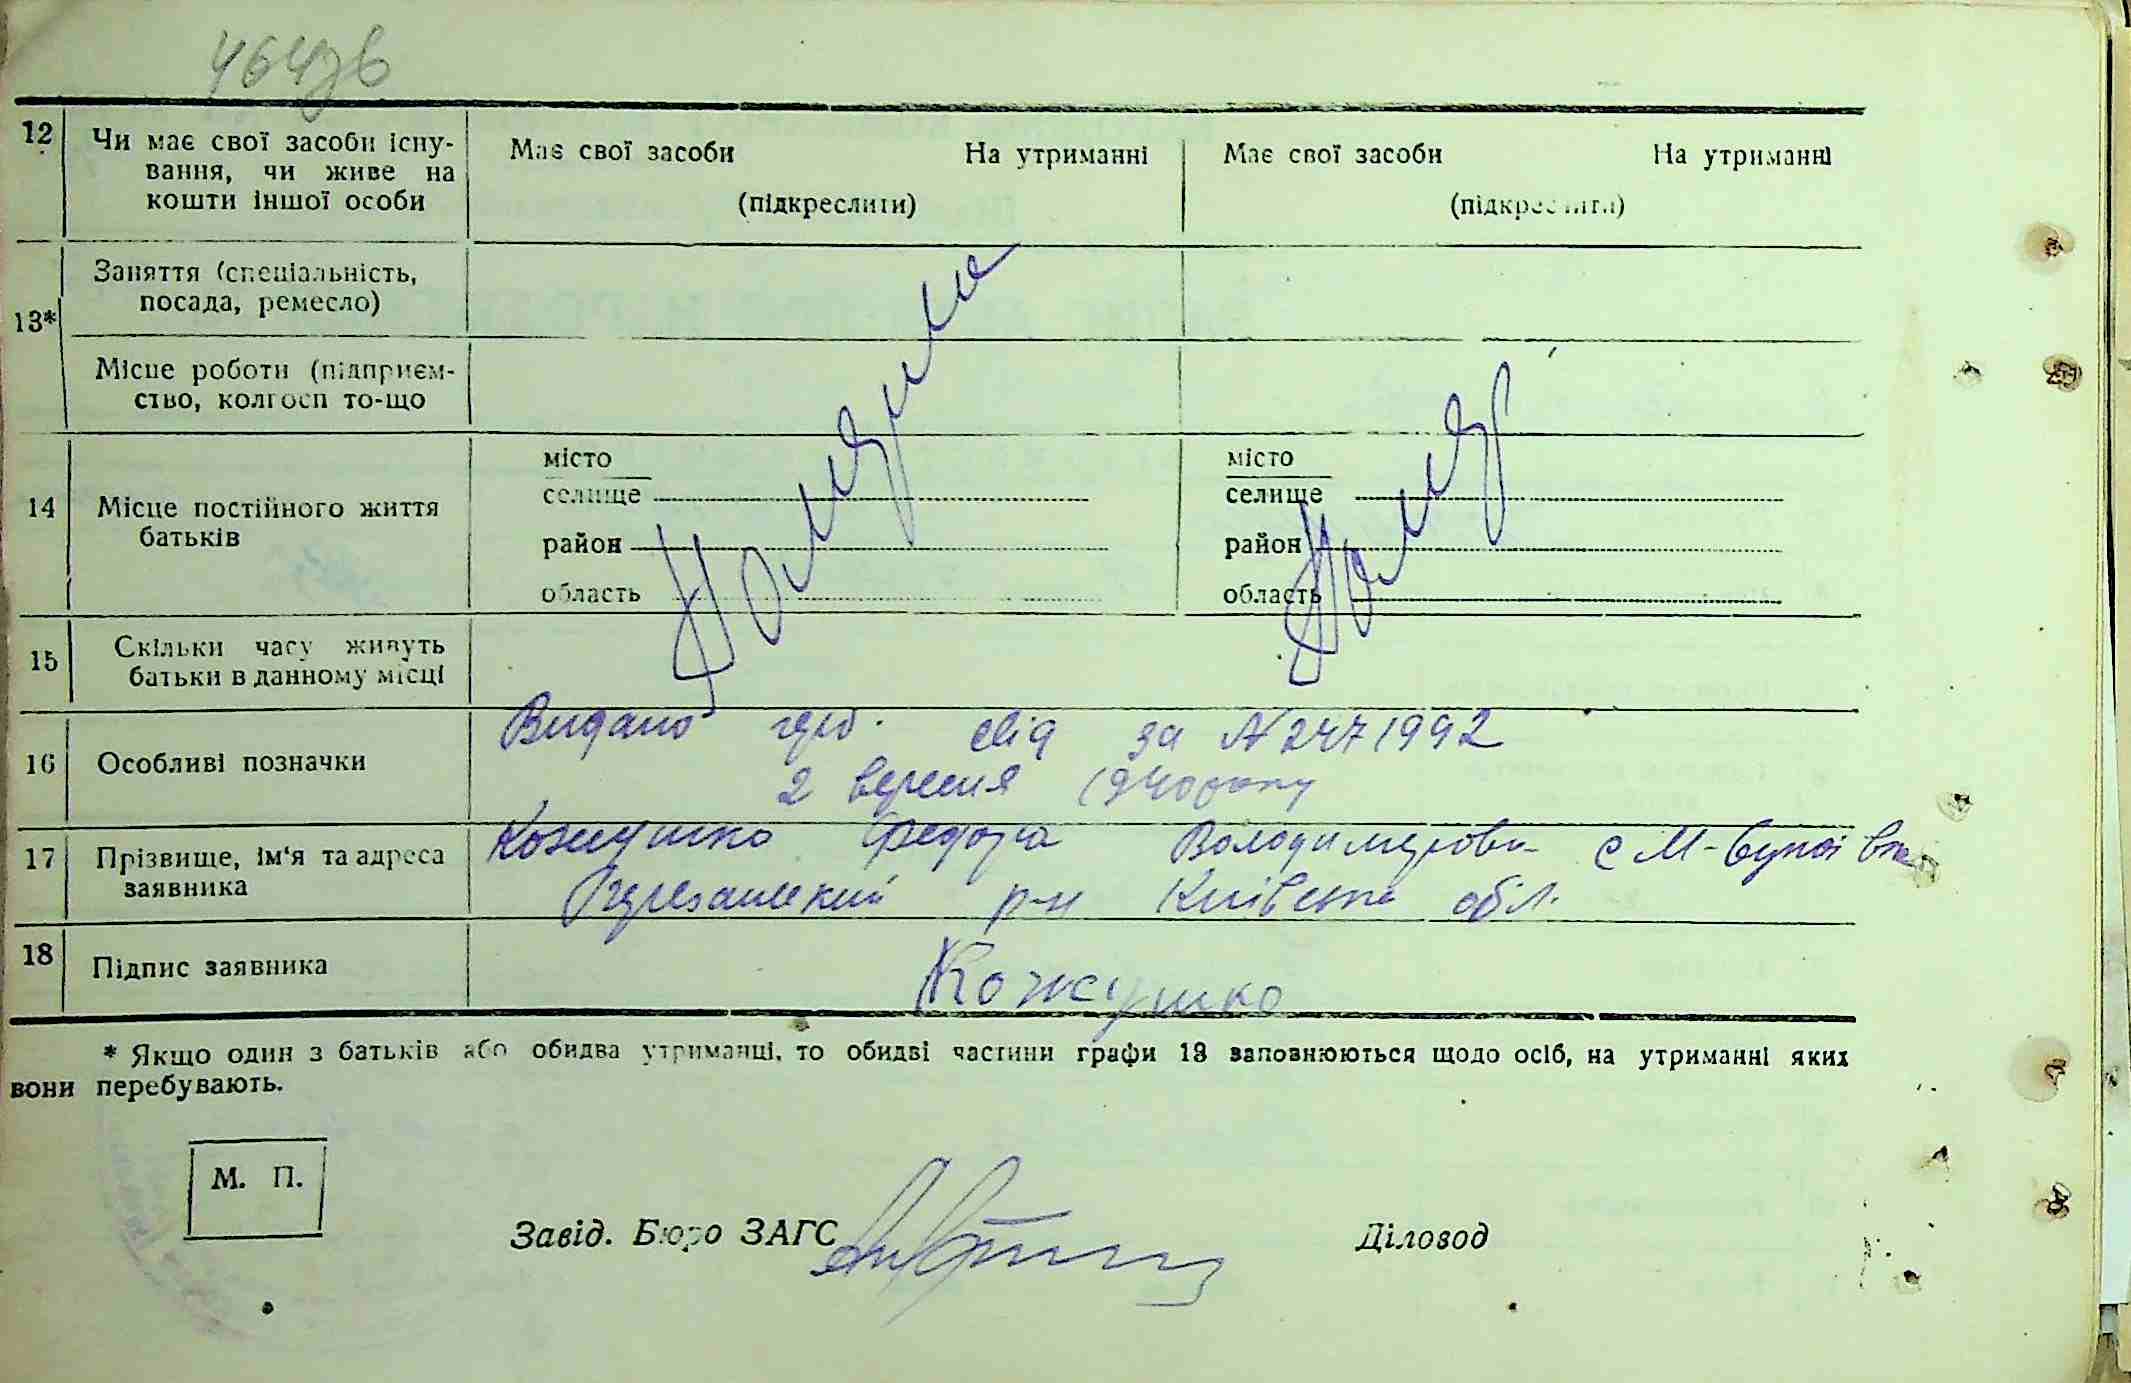 12 Чи має свої засоби існу-
вання, чи живе на
кошти іншої особи
Має свої засоби На утриманні
(підкреслити)
Має свої засоби На утриманні
(підкреслити)
13*
Заняття (спеціальність,
посада, ремесло)
Місце роботи (підприєм-
ство, колгосп то-що
14 Місце постійного життя
батьків
місто
селище
район
область
місто
селище
район
область
15 Скільки часу живуть
батьки в данному місці
16 Особливі позначки
Видано свід за №2471992
2 вересня 1940 року
17 Прізвище, ім'я та адреса
заявника
Кожушко Федора Володимирови с М-Супоївка
р-н Київська обл.
18 Підпис заявника
Кожушко
* Якщо один з батьків або обидва утриманці, то обидві частини графи 13 заповнюються щодо осіб, на утриманні яких
вони перебувають.
М. П.
Завід. Бюро ЗАГС Діловод